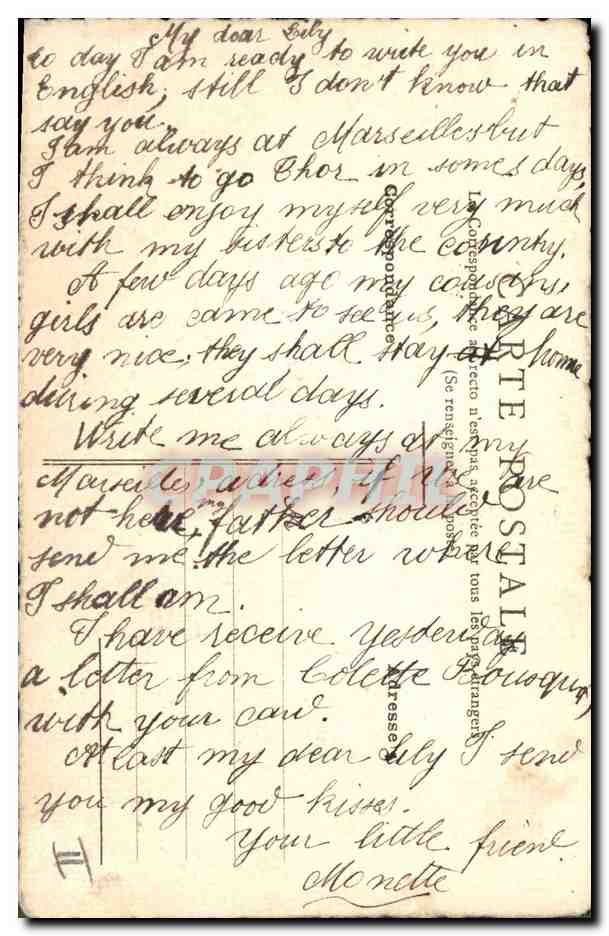 My dear Lily
to day I am ready to write you in
English, still I don't know that
say you.
I am always at Marseilles but
I think to go Thor in somes days,
I shall enjoy myself very much
with my sisters to the country.
A few days ago my cousins,
girls are came to see us, they are
very nice, they shall stay at home
during several days.
Write me always at my
Marseilles, adress, if we are
not here, my father should
send me the letter where
I shall am.
I have receive yesterday
a letter from Colette Bousquet,
with your card.
At last my dear Lily I send
you my good kisses.
Your little friend
Monette
CARTE POSTALE
La Correspondance au recto n'est pas acceptée par tous les pays étrangers
(Se renseigner à la poste)
Correspondance
Adresse
CPAPHIL
II